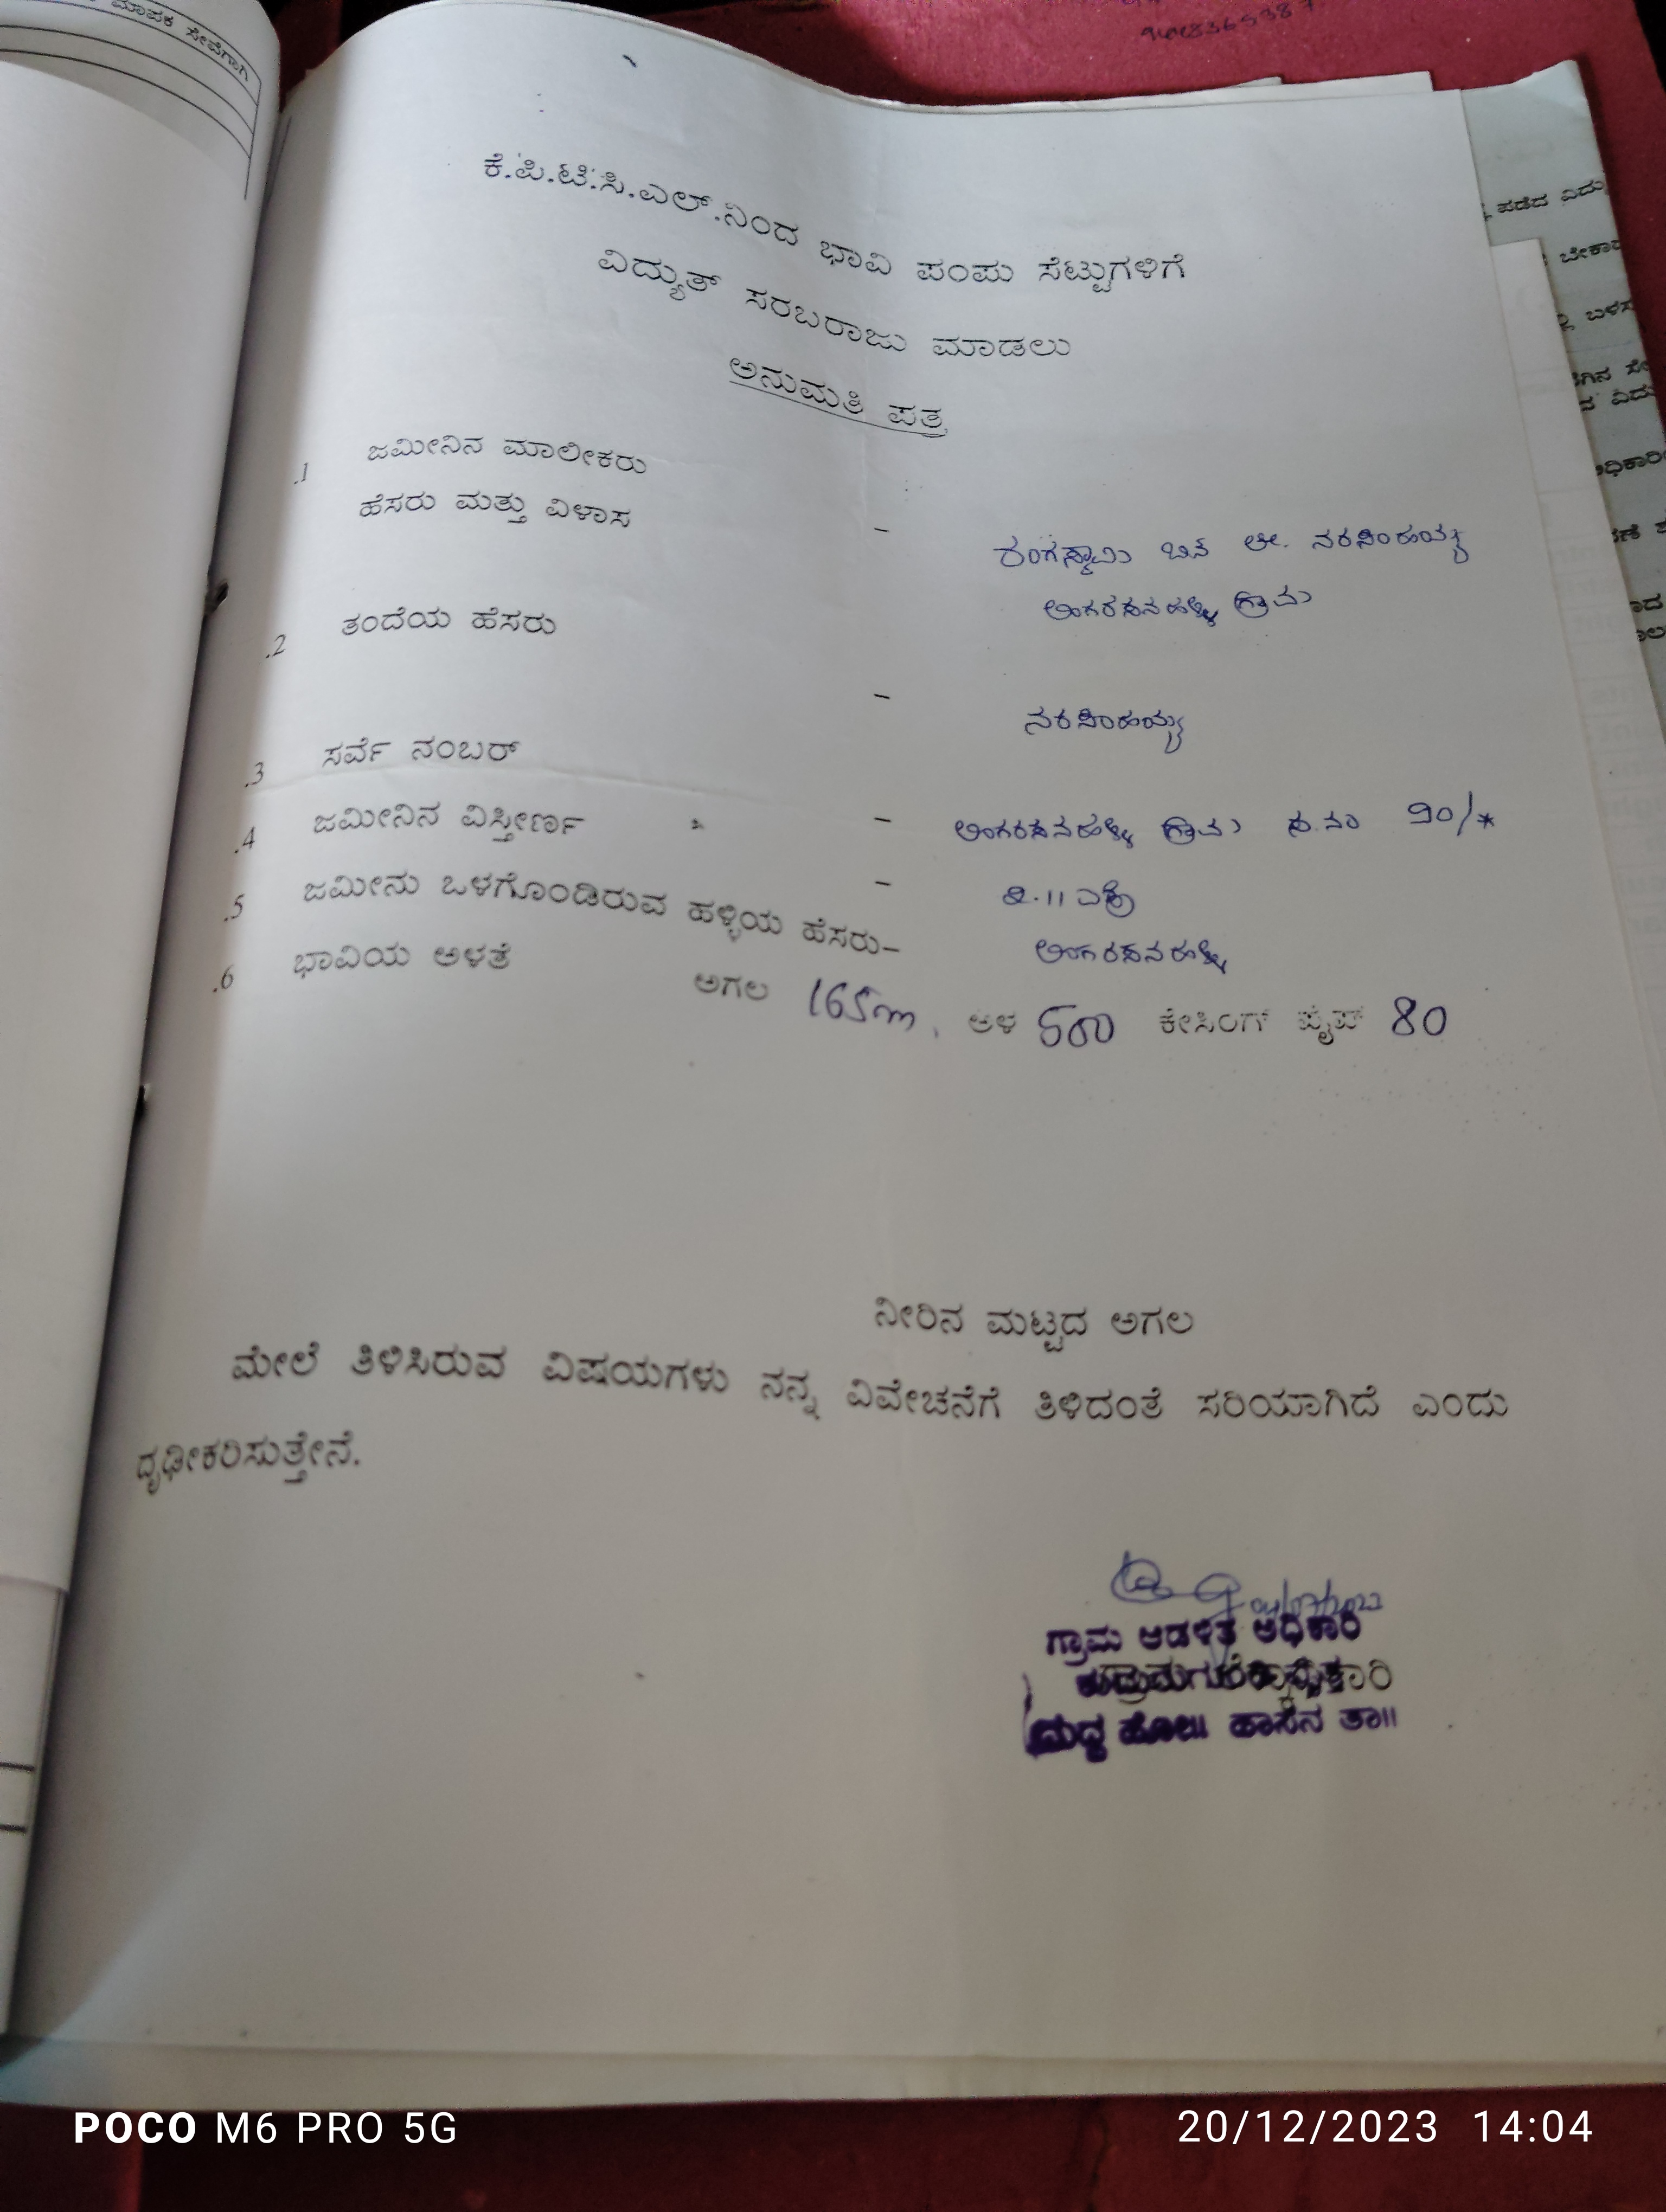 ಮಾಪಕ ಸೇವೆಗಾಗಿ
ಕೆ.ಪಿ.ಟಿ.ಸಿ.ಎಲ್.ನಿಂದ ಭಾವಿ ಪಂಪು ಸೆಟ್ಟುಗಳಿಗೆ
ವಿದ್ಯುತ್ ಸರಬರಾಜು ಮಾಡಲು
ಅನುಮತಿ ಪತ್ರ
.1 ಜಮೀನಿನ ಮಾಲೀಕರು
ಹೆಸರು ಮತ್ತು ವಿಳಾಸ – ರಂಗಸ್ವಾಮಿ ಬಿನ್ ಲೇ. ನರಸಿಂಹಯ್ಯ
ಗ್ರಾಮ
.2 ತಂದೆಯ ಹೆಸರು – ನರಸಿಂಹಯ್ಯ
.3 ಸರ್ವೆ ನಂಬರ್ – ಗ್ರಾಮ ಸ.ನಂ 90/*
.4 ಜಮೀನಿನ ವಿಸ್ತೀರ್ಣ – 2.11 ಎಕ್ರೆ
.5 ಜಮೀನು ಒಳಗೊಂಡಿರುವ ಹಳ್ಳಿಯ ಹೆಸರು–
.6 ಭಾವಿಯ ಅಳತೆ ಅಗಲ 165mm, ಆಳ 500 ಕೇಸಿಂಗ್ ಪೈಪ್ 80
ನೀರಿನ ಮಟ್ಟದ ಅಗಲ
ಮೇಲೆ ತಿಳಿಸಿರುವ ವಿಷಯಗಳು ನನ್ನ ವಿವೇಚನೆಗೆ ತಿಳಿದಂತೆ ಸರಿಯಾಗಿದೆ ಎಂದು
ದೃಢೀಕರಿಸುತ್ತೇನೆ.
ಗ್ರಾಮ ಆಡಳಿತ ಅಧಿಕಾರಿ
ದುದ್ದ ಹೋಬಳಿ ಹಾಸನ ತಾ||
ಪಡೆದ ವಿದು
ಬೇಕಾದ
ಬಳಸ
POCO M6 PRO 5G
20/12/2023 14:04